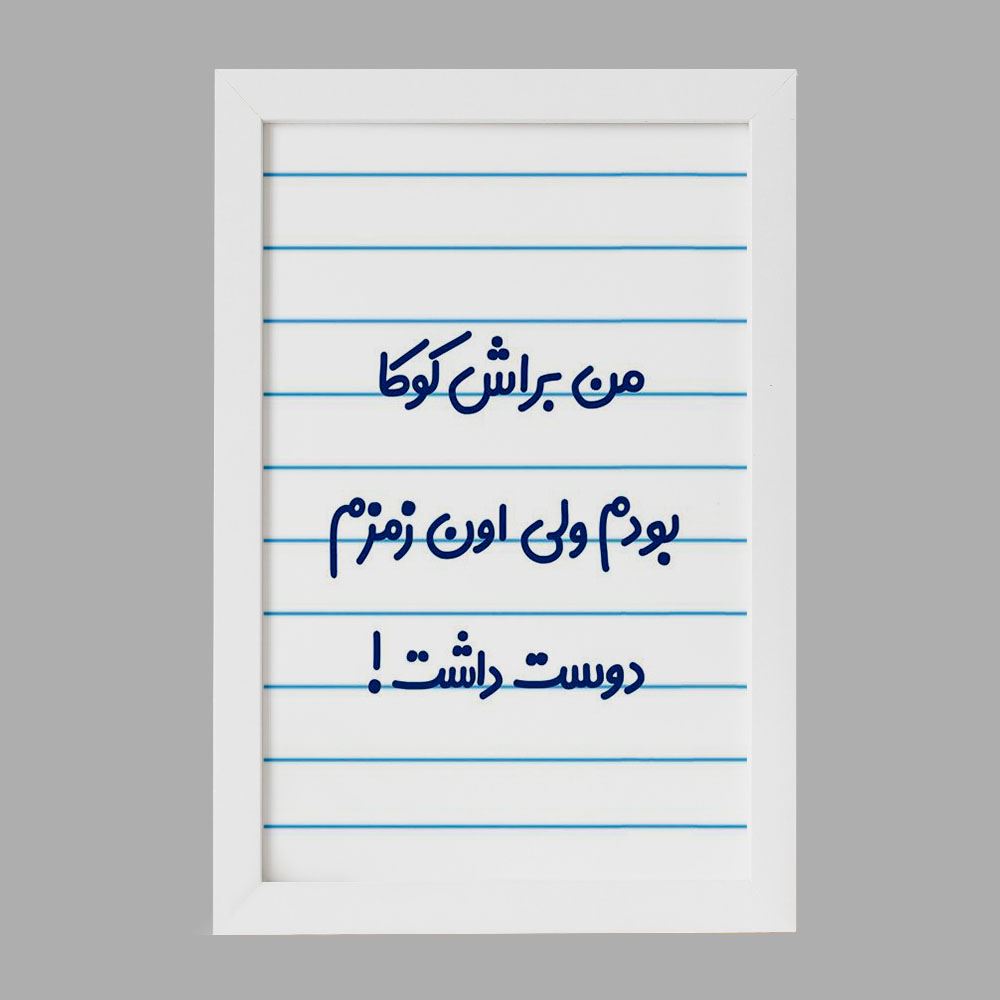 من براش کوکا
بودم ولی اون زمزم
دوست داشت!